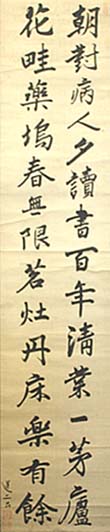 朝對病人夕讀書百年清業一茅廬
花畦藥塢春無限茗灶丹床樂有餘
道三書